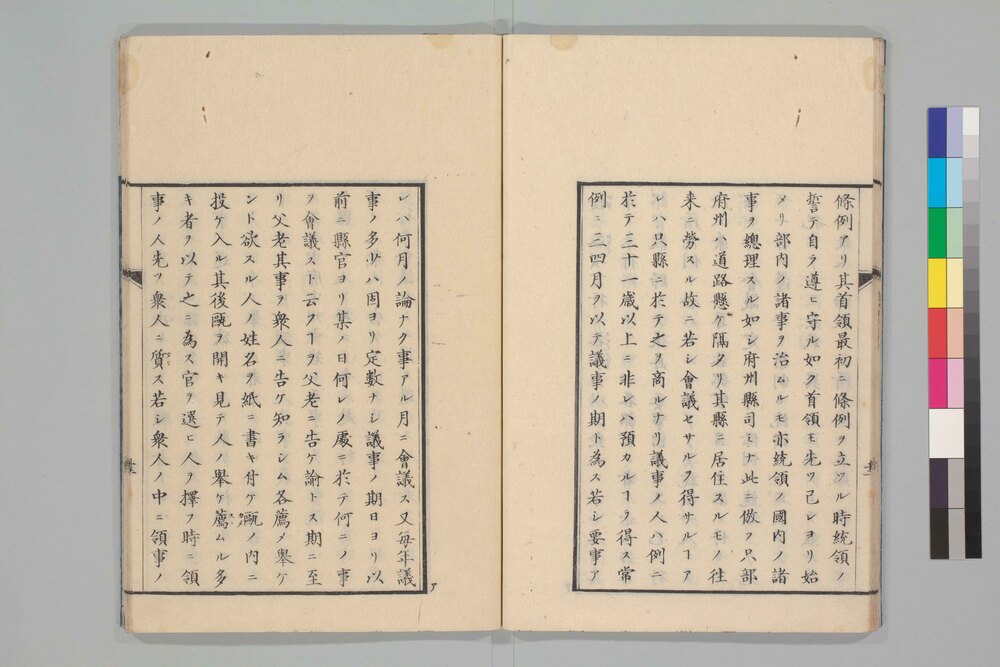 條例アリ其首領最初ニ條例ヲ立ツル時統領ノ
誓テ自ラ遵ヒ守ル如ク首領モ先ツ己レヨリ始
メリ部内ノ諸事ヲ治ムルモ亦統領ノ國内ノ諸
事ヲ總理スル如シ府州縣司ミナ此ニ倣フ只部
府州ハ道路懸ケ隔タリ其縣ニ居住スルモノ往
来ニ勞スル故ニ若シ會議セサルヲ得サルヿア
レハ只縣ニ於テ之ヲ商ルナリ議事ノ人ハ例ニ
於テ三十一歳以上ニ非レハ預カルヿヲ得ス常
例ニ三四月ヲ以テ議事ノ期ト為ス若シ要事ア
レハ何月ノ論ナク事アル月ニ會議ス又毎年議
事ノ多少ハ固ヨリ定數ナシ議事ノ期日ヨリ以
前ニ縣官ヨリ某ノ日何レノ處ニ於テ何ニノ事
ヲ會議スト云フヿヲ父老ニ告ケ諭トス期ニ至
リ父老其事ヲ衆人ニ告ケ知ラシム各薦メ舉ケ
ント欲スル人ノ姓名ヲ紙ニ書キ付ケ甌ノ内ニ
投ケ入ル其後甌ヲ開キ見テ人ノ舉ケ薦ムル多
キ者ヲ以テ之ニ為ス官ヲ選ヒ人ヲ擇フ時ニ領
事ノ人先ツ衆人ニ質ス若シ衆人ノ中ニ領事ノ